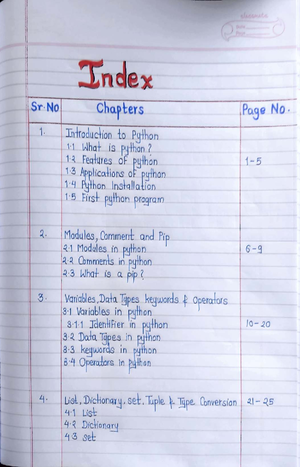 Index
Sr. No Chapters Page No.
1. Introduction to Python
1.1 What is python?
1.2 Features of python 1-5
1.3 Applications of python
1.4 Python Installation
1.5 First python program
2. Modules, Comment and Pip
2.1 Modules in python 6-9
2.2 Comments in python
2.3 What is a pip?
3. Variables, Data Types keywords & Operators
3.1 Variables in python
3.1.1 Identifier in python 10-20
3.2 Data Types in python
3.3 keywords in python
3.4 Operators in Python
4. List, Dictionary, set, Tuple & Type Conversion 21-25
4.1 List
4.2 Dictionary
4.3 set